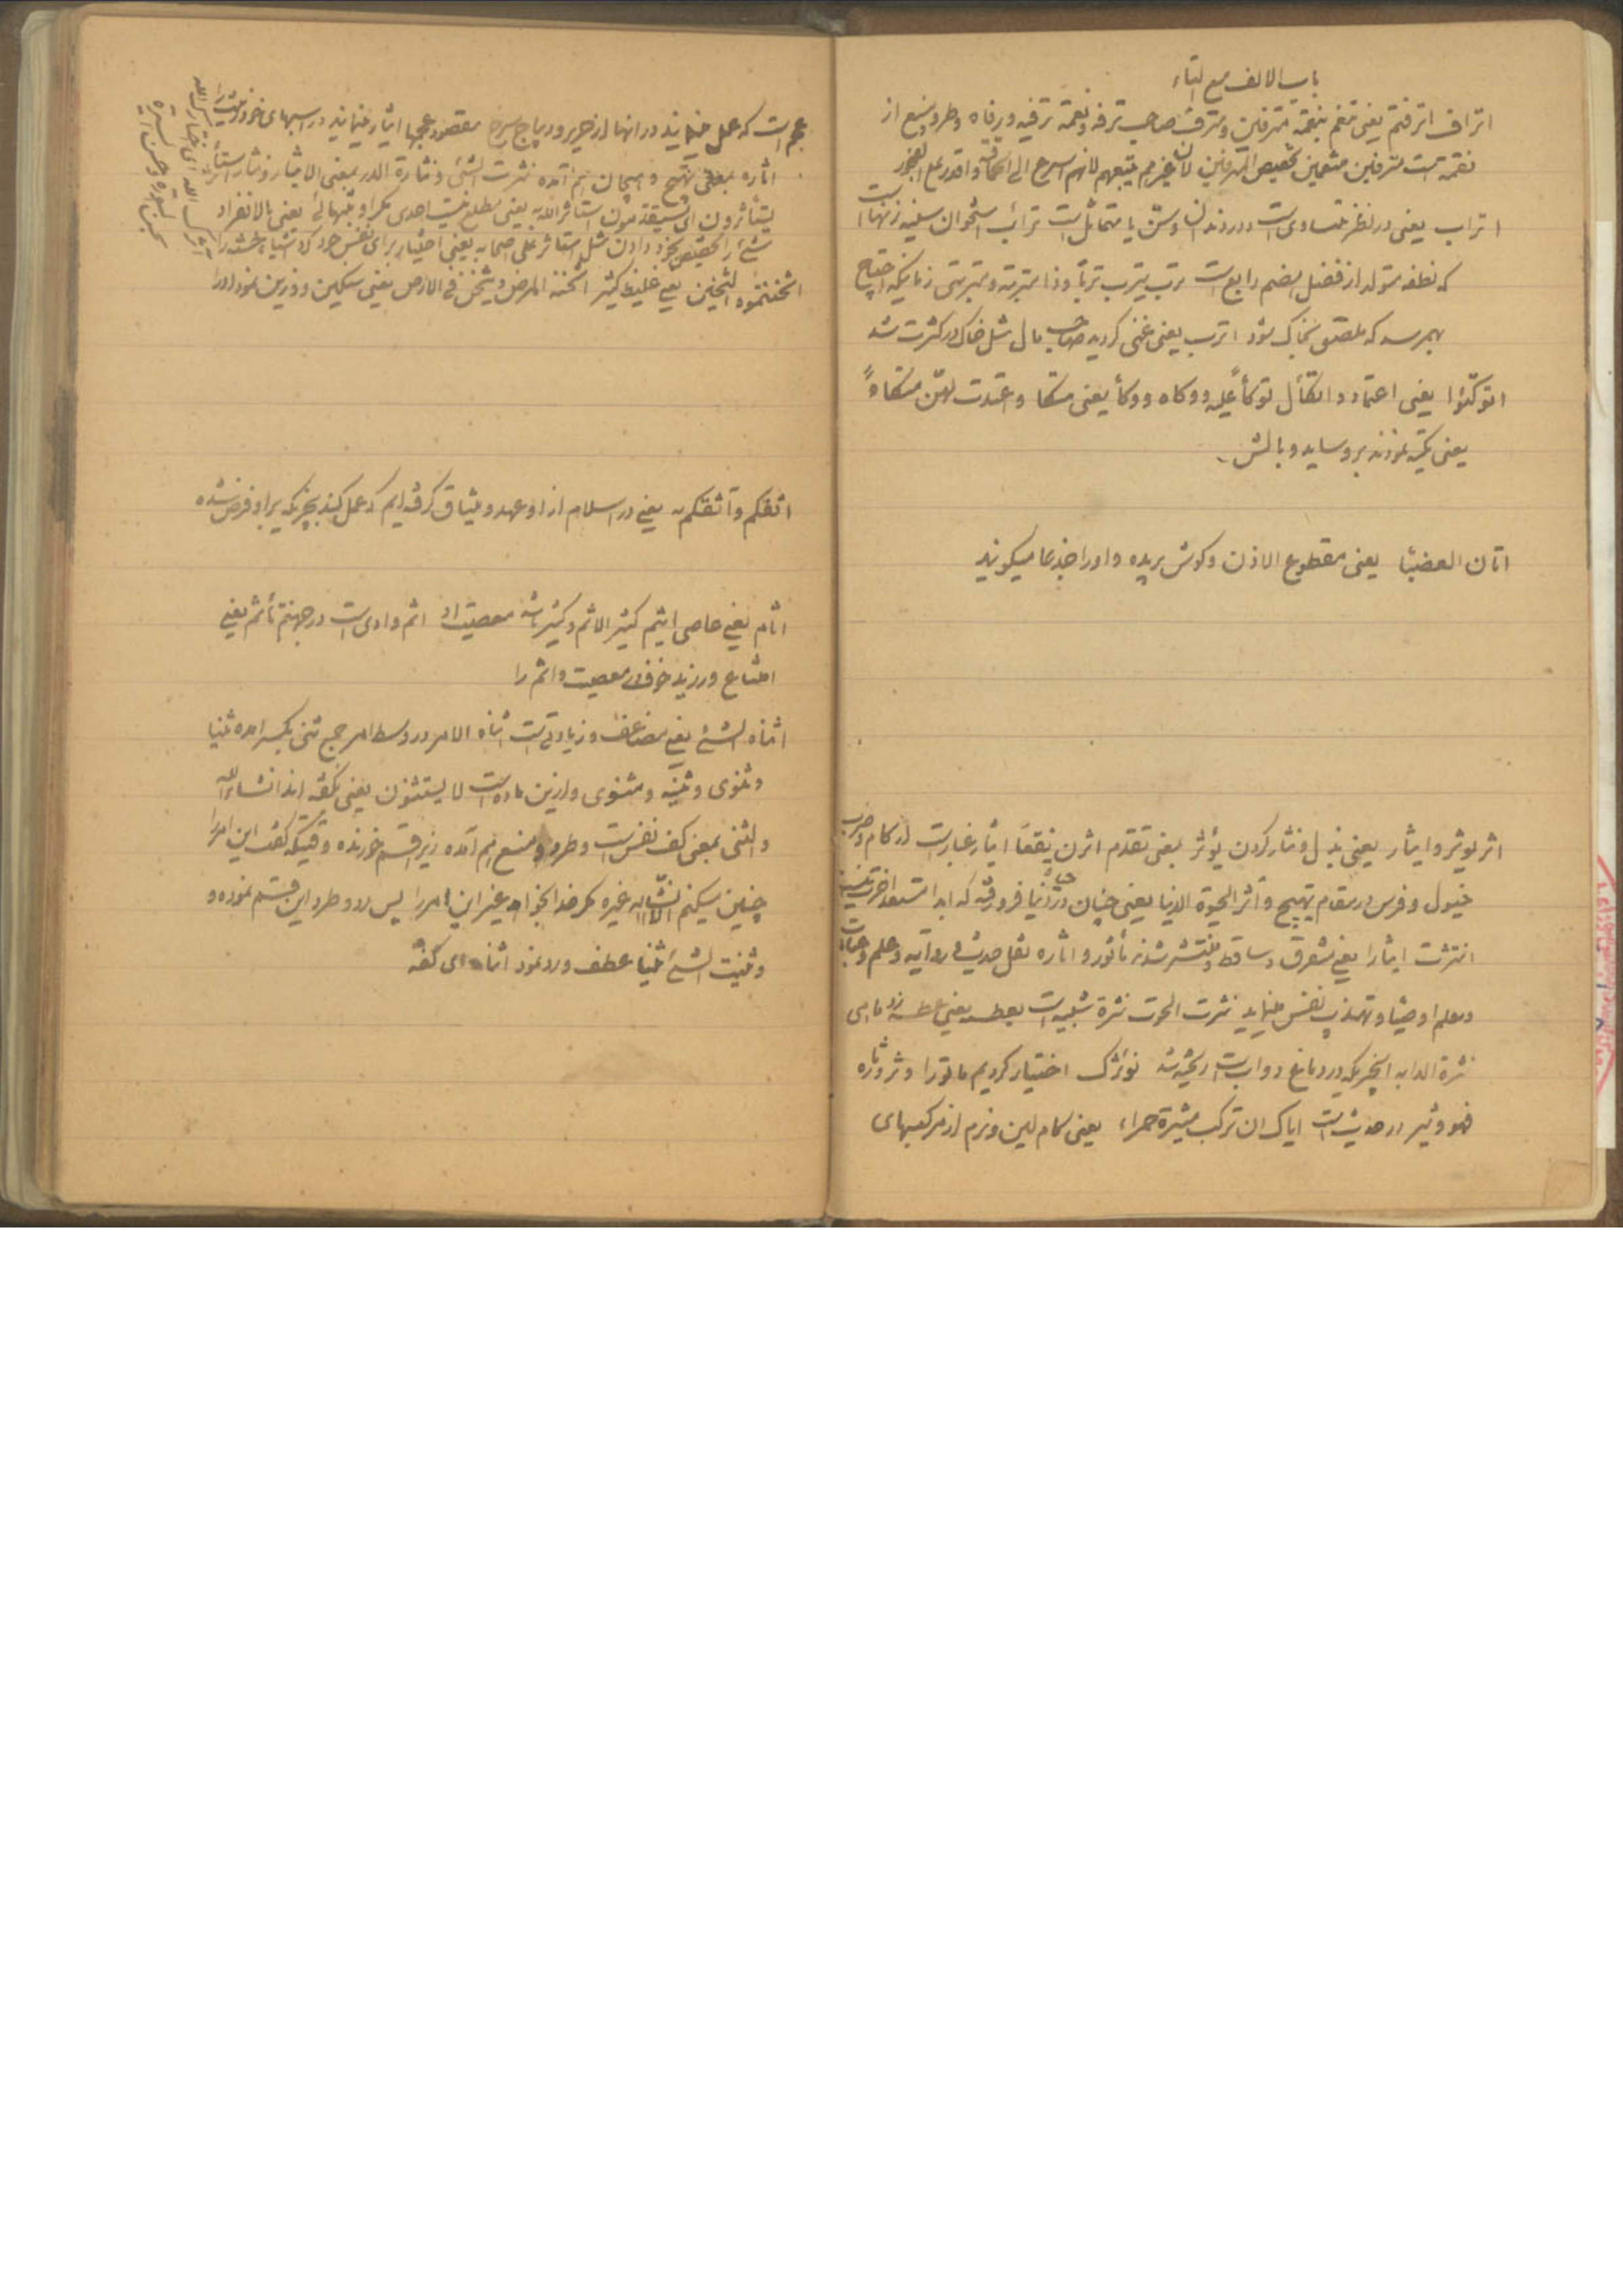 باب الالف مع التاء
اتراف اترفتم یعنی متنعم بنعمة مترفین و مترف صاحب ترفه و نعمة ترفیه و رفاه و طرد و منع از
نقمة است مترفین متنعمین تخصیص المترفین لان غیرهم یتبعهم لانهم اسرع الی و اقدر علی الفجور
اتراب یعنی در نظر متساوی است و در دندان و سن یا متماثل است ترائب استخوان سینه زنهاست
که نطفه متولد از فضل هضم رابع است ترب یترب تربا و ذا متربة و متربتی زمانیکه احتیاج
بهمرسد که ملصق بخاک شود اترب یعنی غنی کردید صاحب مال مثل خاک در کثرت شد
اتوکئوا یعنی اعتماد و اتکأل توکأ علیه و وکاه و وکأ یعنی متکا و اعتدت لهن متکاءً
یعنی تکیه نمودند بر وساید و بالش
اتان العضبا یعنی مقطوع الاذن و کوش بریده و اورا جذعا میکویند
اثر یوثر و ایثار یعنی بذل و نثار کردن یؤثر بمعنی تقدم اثرن نقعا ایثار غبار است از کام و ضرب
خیول و فرس در مقام تهییج و آثر الحیوة الدنیا یعنی چنان در دنیا فرو رفته که ابدا استعداد اخرت نیست
انتثرت ایثارا یعنی متفرق و ساقط و منتشر شدند مأثور و اثاره نقل حدیث و روایه و علم و
و معلم او ضیا و تهذیب نفس مینماید نثرت الحوت نثرة شبیه است بعطسه یعنی عطسه زد ماهی
نثرة الدابه انچیزیکه در دماغ دواب است ریخته شد نوثرک اختیار کردیم ما تورا وثر وثاره
فهو وثیر در حدیث است ایاک ان ترکب میثرة حمراء یعنی کام لین و نرم از مرکبهای
عجم است که عمل مینمایند در انها از حریر و دیباج سرخ مقصود عجبا ایثار مینمایند در اسبهای خود
اثاره بمعنی تهییج و هیجان هم آمده نثرت الشئ و نثارة الدر بمعنی الایثار و نثار
یستأثرون ای یسبقه استاثر الله به یعنی مطلع نیست احدی مکر او یعنی بالانفراد
شئ را تخصیص بخود دادن مثل استاثر علی اصحابه یعنی اختیار برای نفس خود کرد اشیاء را
اثخنتموه الثخین یعنی غلیظ کثیر اثخنه المرض و یثخن فی الارض یعنی سنکین و وزین نمود اورا
اثفکم و آثفکم به یعنی در اسلام از او عهد و میثاق کرفته ایم که عمل کند بچیزیکه بر او فرض شده
اثام یعنی عاصی اثیم کثیر الاثم و کثیر شد معصیت او اثم وادی است در جهنم تأثم یعنی
امتناع ورزید معصیت و اثم را
اثناء الشئ یعنی مضاعف و زیادتی است اثناء الامر در وسط امر جمع ثنی بکسر امده ثنیا
و ثنوی و ثنیه و مثنوی و ازین ماده است لا یستثنون یعنی نکفته اند انشاءالله
و الثنی بمعنی کف نفس است و طرد و منع هم آمده زیر قسم خورنده وقتیکه کفت این امرا
چنین میکنم الا انشاءالله غیره مکر خدا بخواهد غیر این امر را پس رد و طرد این قسم نموده و
و ثنیت الشئ ثنیا عطف و رد نمود اثناء ای کفّ